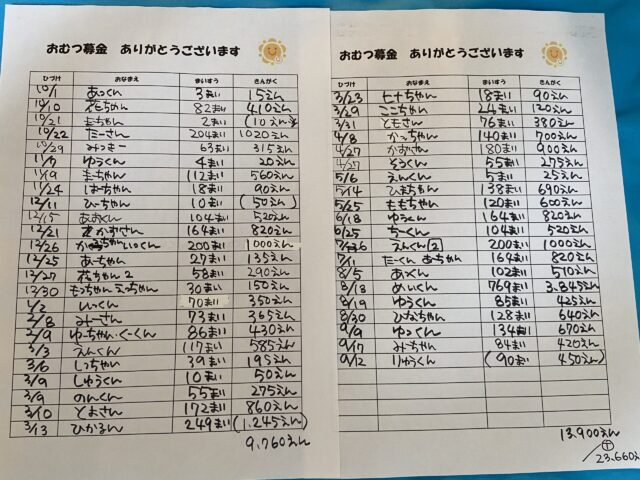 おむつ募金 ありがとうございます
ひづけ おなまえ まいすう きんがく
10/1 あっくん 3まい 15えん
10/10 花ちゃん 82まい 410えん
10/21 もちゃん 2まい (10えん)
10/22 たーさん 204まい 1020えん
10/29 みっきー 63まい 315えん
11/7 ゆうくん 4まい 20えん
11/19 まーちゃん 112まい 560えん
11/24 はーちゃん 18まい 90えん
12/11 ひーちゃん 10まい (50えん)
12/15 あおくん 104まい 520えん
12/21 かおさん 164まい 820えん
12/26 いっくん 200まい 1000えん
12/25 あーちゃん 27まい 135えん
12/27 花ちゃん2 58まい 290えん
12/30 もっちゃん えっちゃん 30まい 150えん
1/2 いっくん 70まい 350えん
2/8 みーさん 73まい 365えん
2/9 ゆーちゃん・ぐーくん 86まい 430えん
3/3 えんくん 117まい 585えん
3/6 しっちゃん 39まい 195えん
3/9 しゅうくん 10まい 50えん
3/9 のんくん 55まい 275えん
3/10 とよさん 172まい 860えん
3/13 ひかるん 249まい (1.245えん)
9.760えん
おむつ募金 ありがとうございます
ひづけ おなまえ まいすう きんがく
3/23 ちゃん 18まい 90えん
3/29 ここちゃん 24まい 120えん
3/31 ともさん 76まい 380えん
4/8 かっちゃん 140まい 700えん
4/27 かおさん 180まい 900えん
4/27 そうくん 55まい 275えん
5/6 えんくん 5まい 25えん
5/14 ひまちゃん 138まい 690えん
5/25 ももちゃん 120まい 600えん
6/18 ゆうくん 164まい 820えん
6/25 ちーくん 104まい 520えん
えんくん2 200まい 1000えん
7/11 たーくん あーちゃん 164まい 820えん
8/5 あっくん 102まい 510えん
8/13 めいくん 769まい 3.845えん
8/19 ゆうくん 85まい 425えん
8/30 ひなちゃん 128まい 640えん
9/9 ゆっくん 134まい 670えん
9/17 みーちゃん 84まい 420えん
9/12 りゅうくん (90まい 450えん)
13.900えん
/ 23.660えん